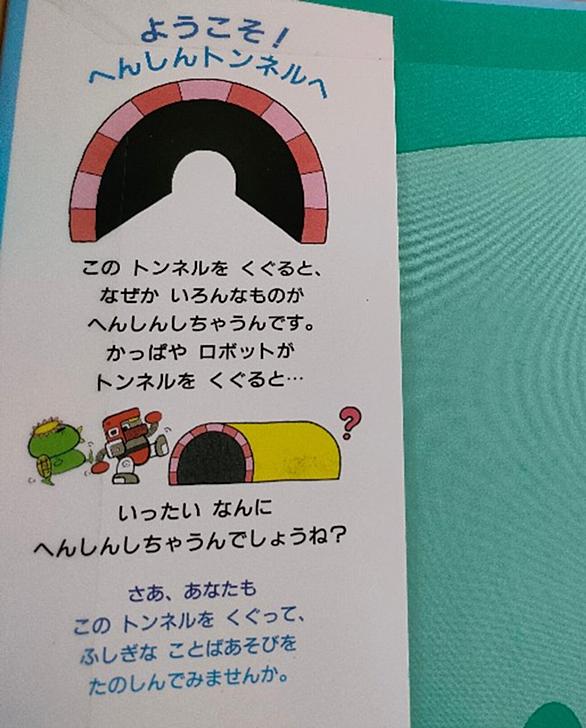 ようこそ！
へんしんトンネルへ
この トンネルを くぐると、
なぜか いろんなものが
へんしんしちゃうんです。
かっぱや ロボットが
トンネルを くぐると…
?
いったい なんに
へんしんしちゃうんでしょうね？
さあ、あなたも
この トンネルを くぐって、
ふしぎな ことばあそびを
たのしんでみませんか。